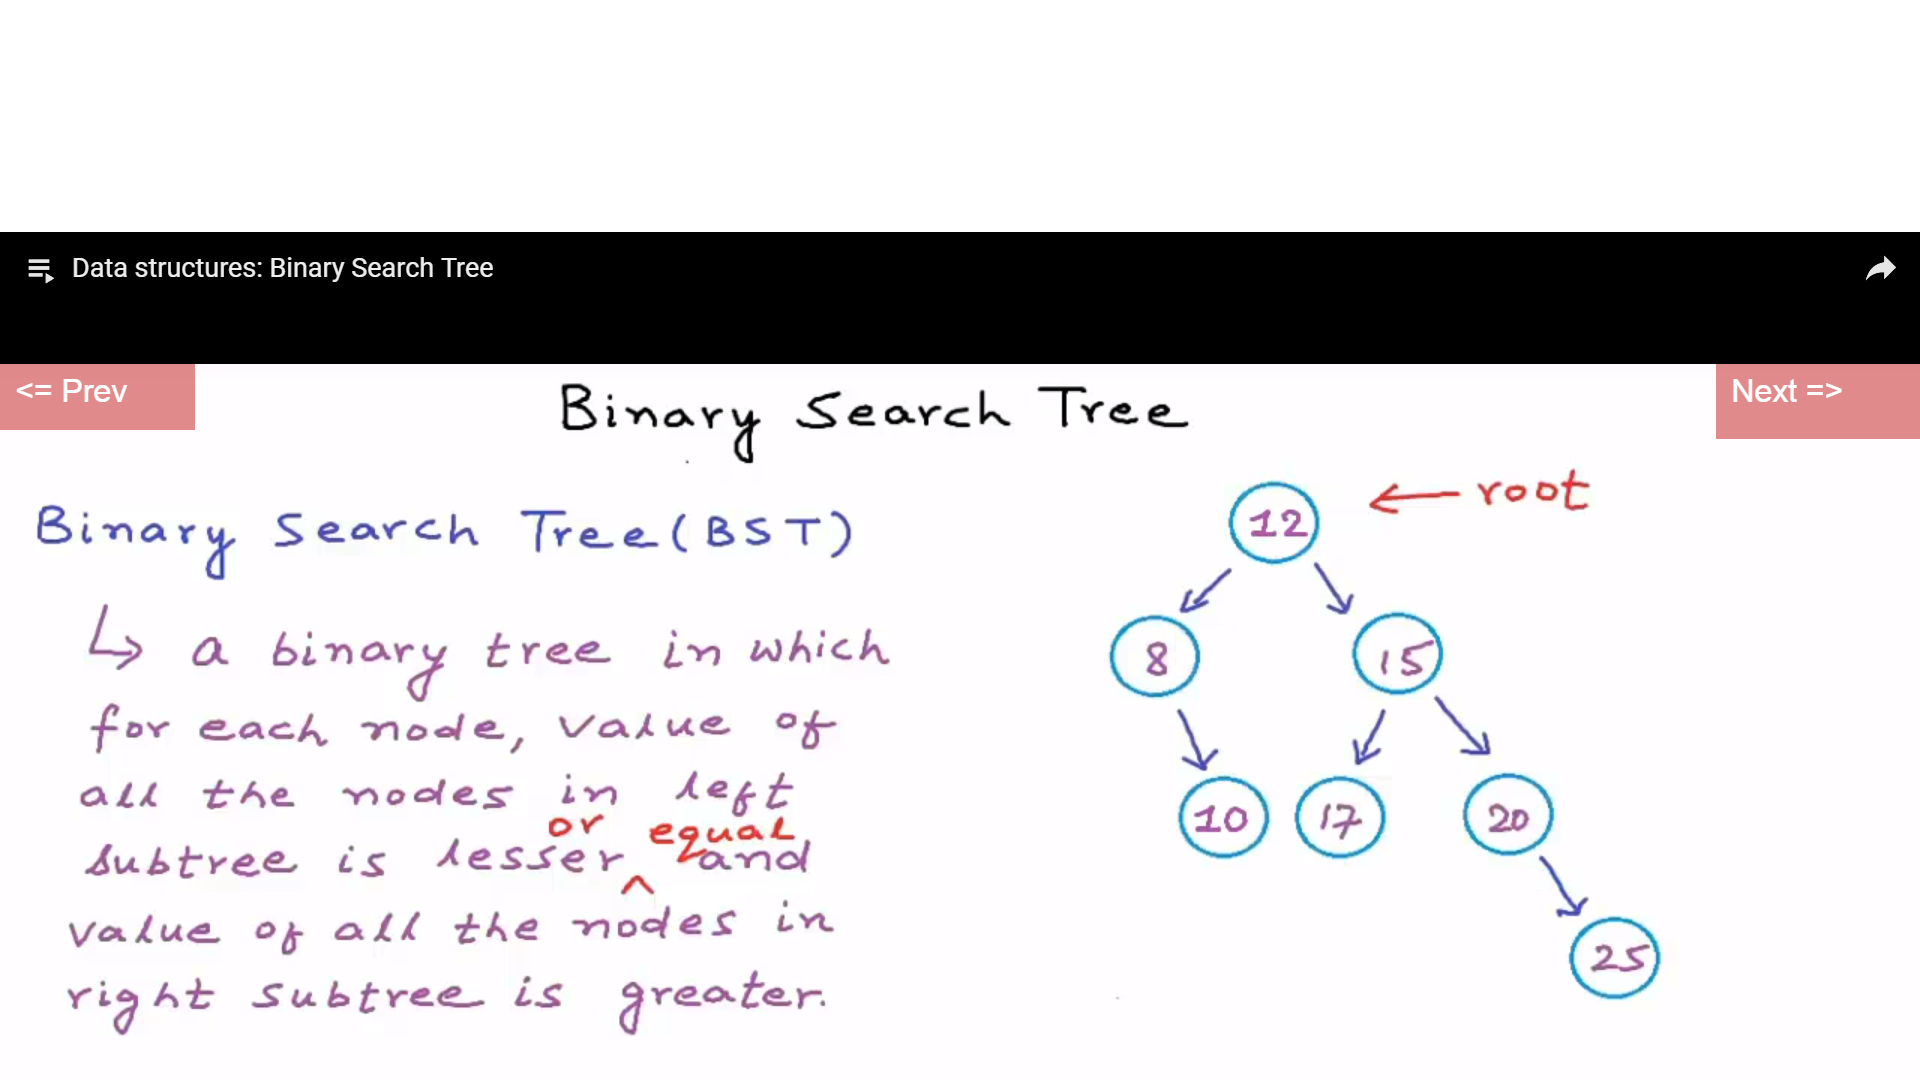 Data structures: Binary Search Tree
<= Prev
Next =>
Binary Search Tree
Binary Search Tree (BST)
a binary tree in which
for each node, value of
all the nodes in left
or equal
subtree is lesser and
value of all the nodes in
right subtree is greater.
root
12
8
15
10
17
20
25